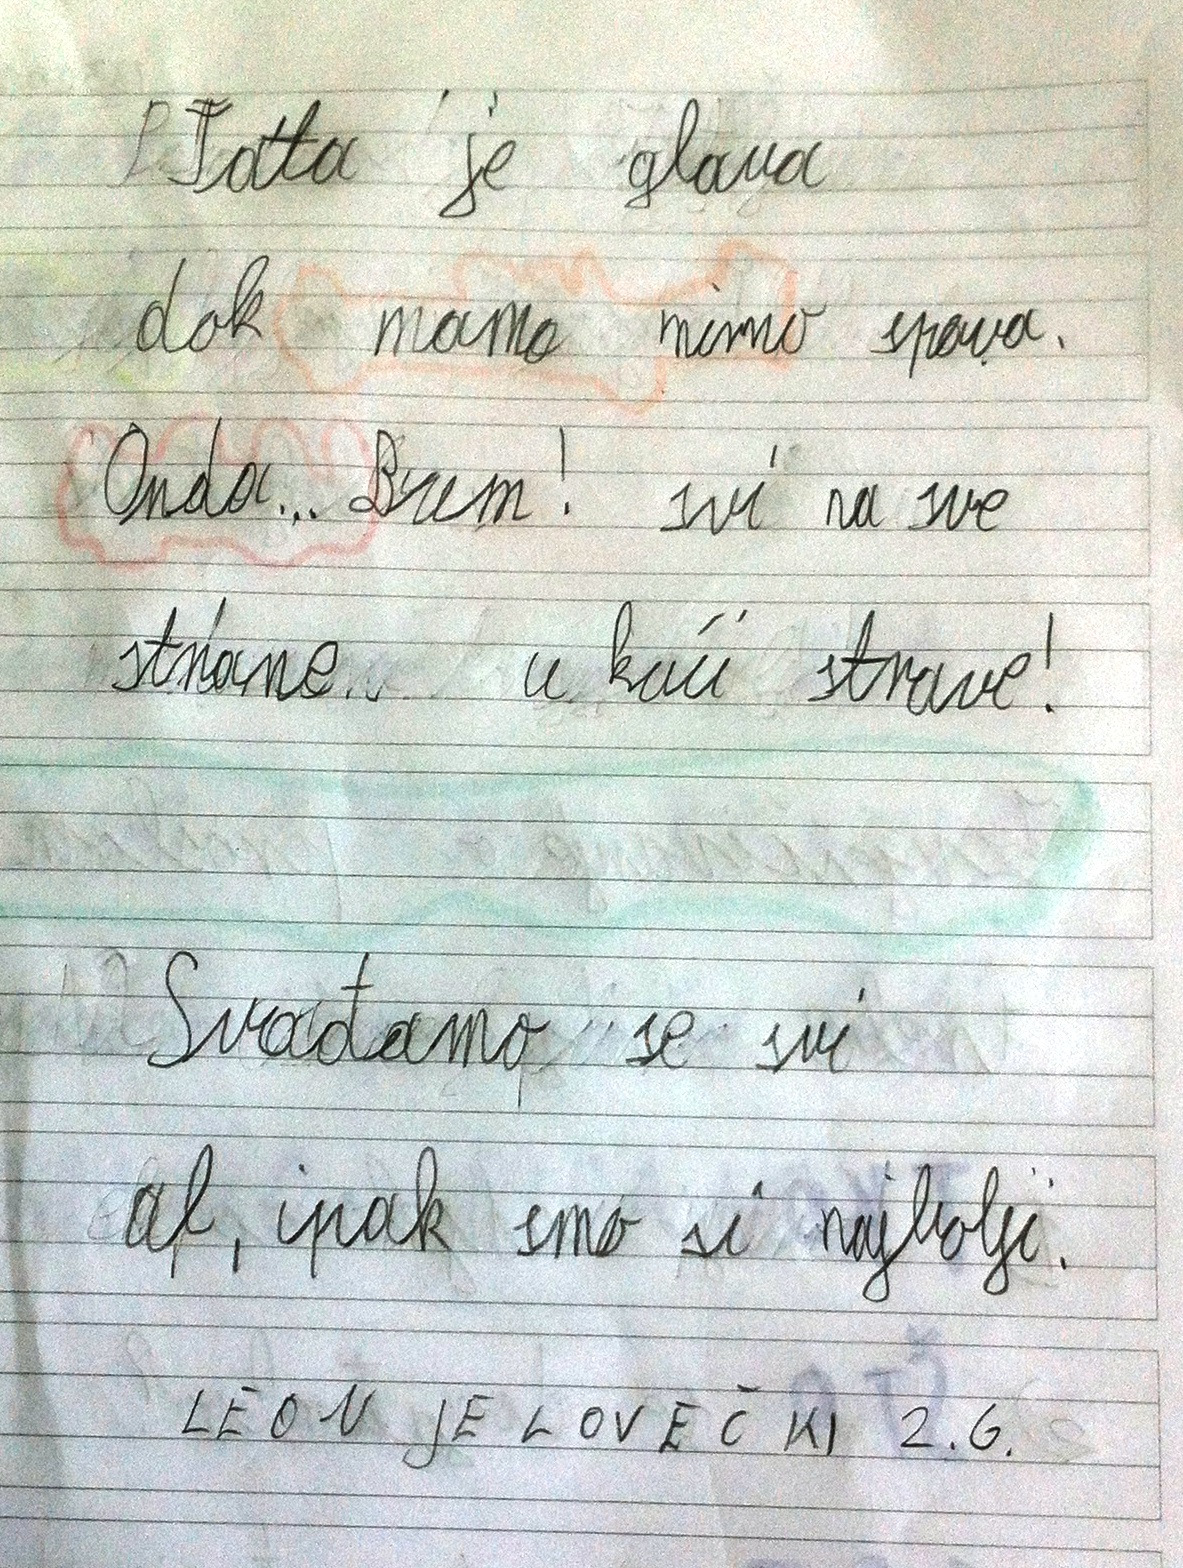 Tata je glava
dok mama mirno spava.
Onda... Bum! svi na sve
strane.. u kući strave!
Svađamo se svi
al, ipak smo si najbolji.
LEON JELOVEČKI 2.G.